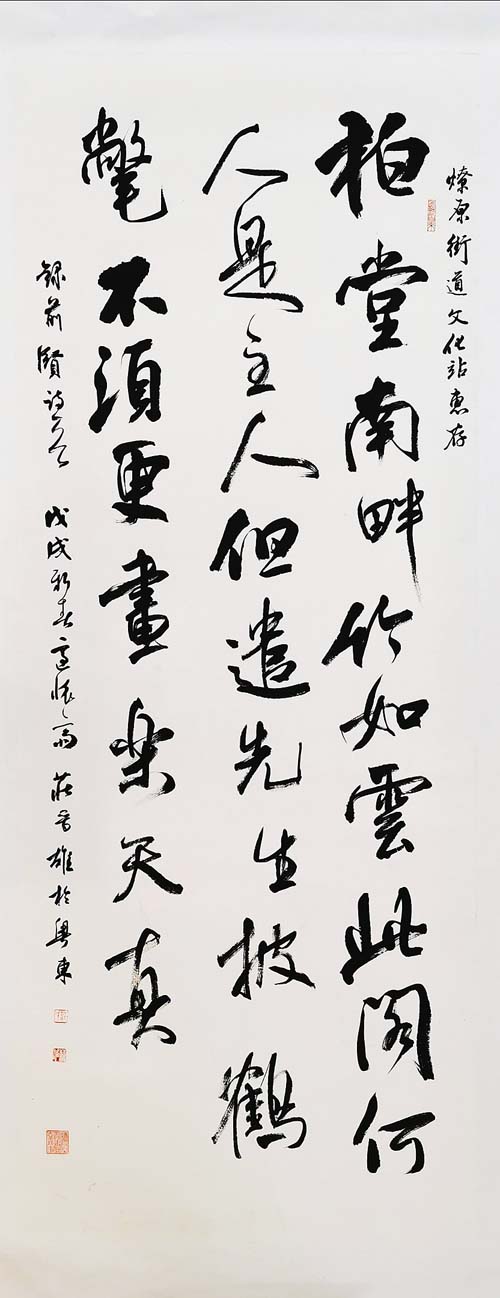 燎原街道文化站惠存
柏堂南畔竹如雲此閣何
人是主人但遣先生披鶴
氅不須更畫樂天真
錄前賢詩
戊戌新春 莊 雄於粵東